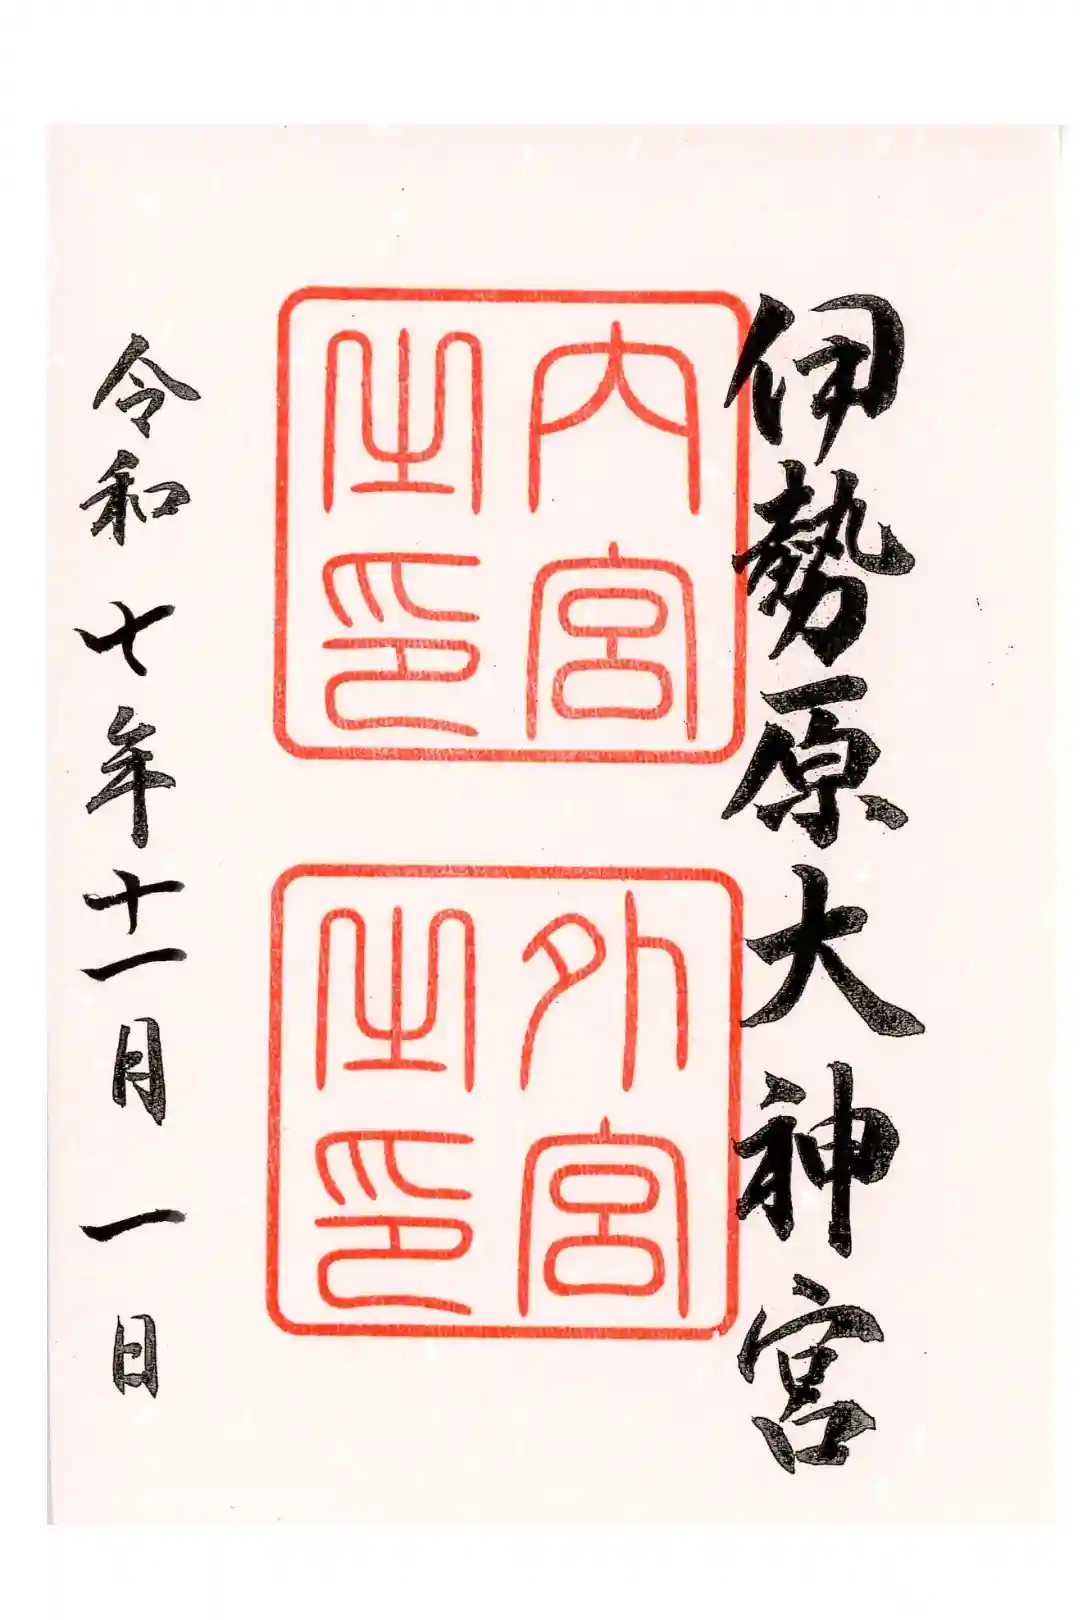 伊勢原大神宮
内宮
之印
外宮
之印
令和七年十一月一日